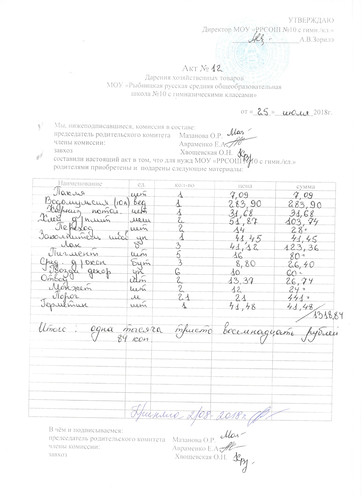 УТВЕРЖДАЮ
Директор МОУ «РРСОШ №10 с гимн./кл.»
А.В.Зорило
Акт № 12
Дарения хозяйственных товаров
МОУ «Рыбницкая русская средняя общеобразовательная
школа №10 с гимназическими классами»
от « 25 » июля 2018г.
Мы, нижеподписавшиеся, комиссия в составе:
председатель родительского комитета Мазанова О.Р.
члены комиссии: Авраменко Е.А.
завхоз Хвощевская О.Н.
составили настоящий акт в том, что для нужд МОУ «РРСОШ №10 с гимн./кл.»
родителями приобретены и подарены следующие материалы
Наименование ед. кол-во цена сумма
Пакля шт 1 7,09 7,09
(10л) вед 1 283,90 283,90
потол. шт 1 31,68 31,68
Клей д/плит шт 2 51,87 103,74
Переход шт 2 14 28
уп 1 41,45 41,45
Лак уп 3 41,12 123,36
Пигмент шт 5 16 80
бут 3 8,80 26,40
уп 6 10 60
Отвод шт 2 13,37 26,74
Манжет шт 2 12 24
Порог м 21 21 441
Герметик шт 1 41,48 41,48
1318,84
Итого: одна тысяча триста восемнадцать рублей
84 коп.
2/08-2018г.
В чём и подписываемся:
председатель родительского комитета Мазанова О.Р.
члены комиссии: Авраменко Е.А.
завхоз Хвощевская О.Н.